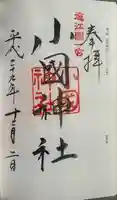 奉拝
遠江國一宮
小國神社
平成二十九年十二月二日